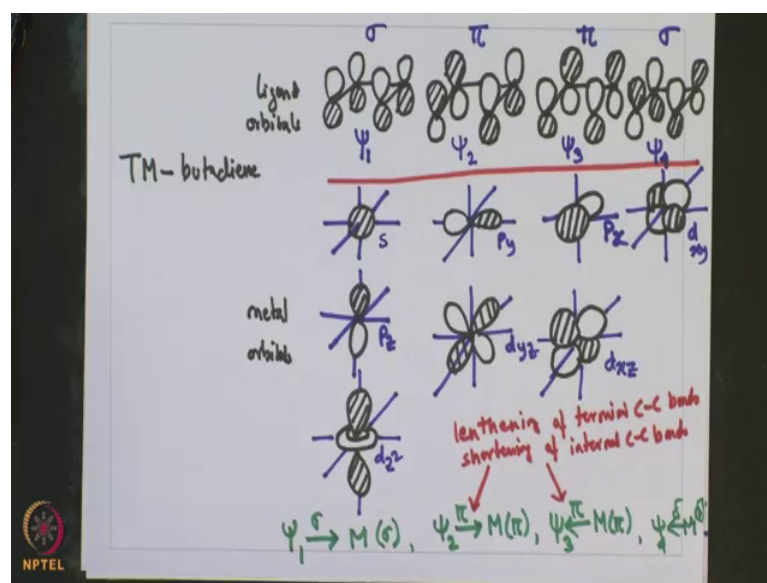 σ π π σ
ligand
orbitals
ψ1 ψ2 ψ3 ψ4
TM-butadiene
s py px dxy
metal
orbitals
pz dyz dxz
lenthening of terminal C-C bonds
shortening of internal C-C bonds
dz2
ψ1 σ→ M(σ), ψ2 π→ M(π), ψ3 π← M(π), ψ4 δ← M(δ).
NPTEL